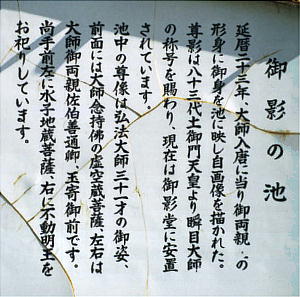 御影の池
延暦二十三年、大師入唐に当り御両親の
形身に御身を池に映し自画像を描かれた。
尊影は八十三代土御門天皇より瞬目大師
の称号を賜わり、現在は御影堂に安置
されています。
池中の尊像は弘法大師三十一才の御姿、
前面には大師念持佛の虚空蔵菩薩、左右は
大師御両親佐伯善通卿、玉寄御前です。
尚手前左に水子地蔵菩薩、右に不動明王を
お祀りしています。